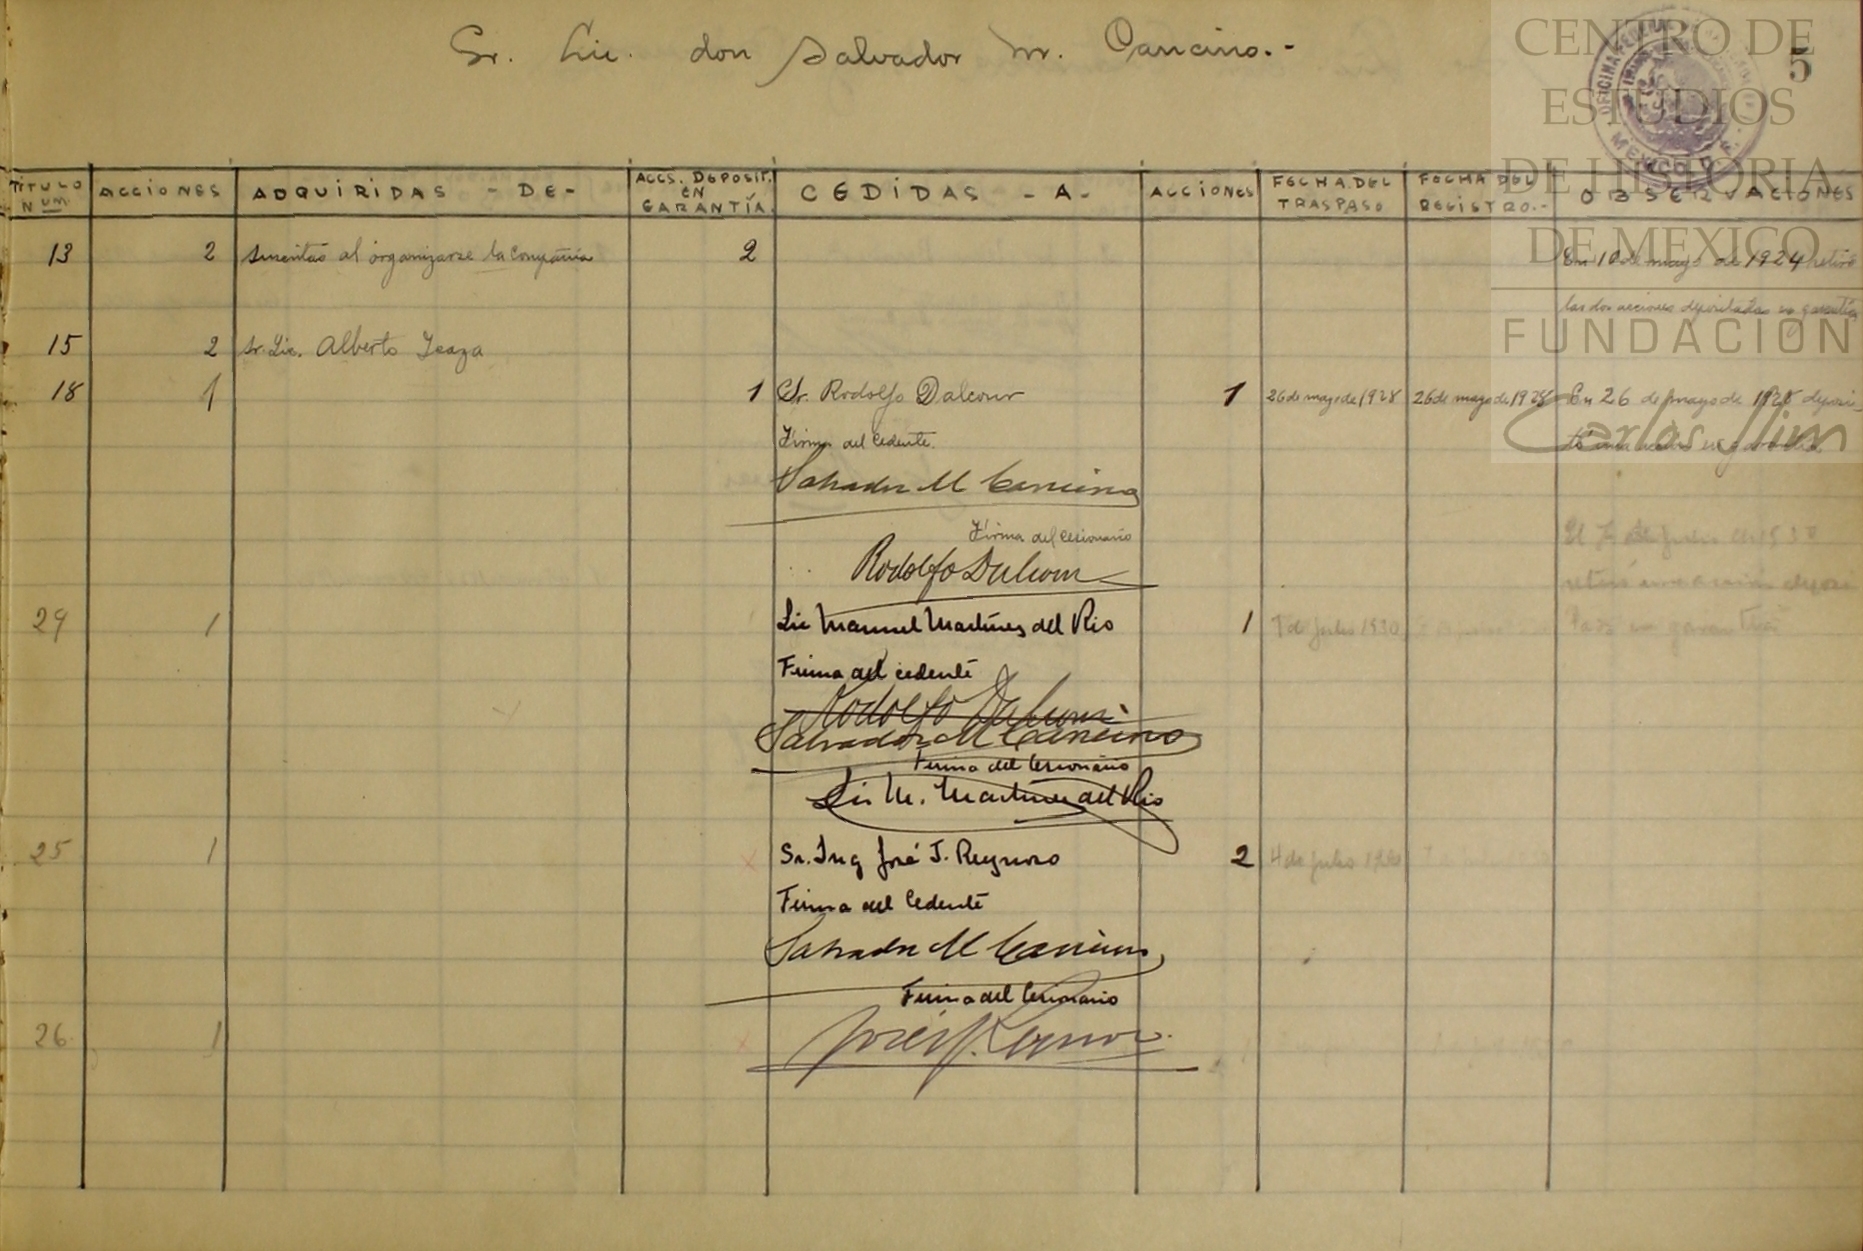 Sr. Lic. don Salvador M. Cancino.-
5
CENTRO DE
ESTUDIOS
DE HISTORIA
DE MEXICO
FUNDACION
Carlos Slim
OFICINA FEDERAL
MEXICO D.F.
TITULO NUM. ACCIONES ADQUIRIDAS - DE - ACCS. DEPOSIT. EN GARANTÍA. CEDIDAS - A - ACCIONES FECHA DEL TRASPASO FECHA DEL REGISTRO.- OBSERVACIONES
13 2 suscritas al organizarse la Compañia 2 En 10 de mayo de 1924 retiró
las dos acciones depositadas en garantía
15 2 Sr. Lic. Alberto Icaza
18 1 1 Sr. Rodolfo Dalcour 1 26 de mayo de 1928 26 de mayo de 1928 En 26 de mayo de 1928 deposi-
Firma del Cedente. tó una acción en garantía.
Salvador M Cancino
Firma del Cesionario El 7 de julio de 1930
Rodolfo Dalcour retiró una acción deposi
29 1 Lic Manuel Martínez del Rio 1 7 de julio 1930 tada en garantía
Firma del cedente
Rodolfo Dalcour
Salvador M Cancino
Firma del Cesionario
Lic M. Martínez del Rio
25 1 Sr. Ing José J. Reynoso 2 4 de julio 1930
Firma del Cedente
Salvador M Cancino
Firma del Cesionario
26 1 José J. Reynoso